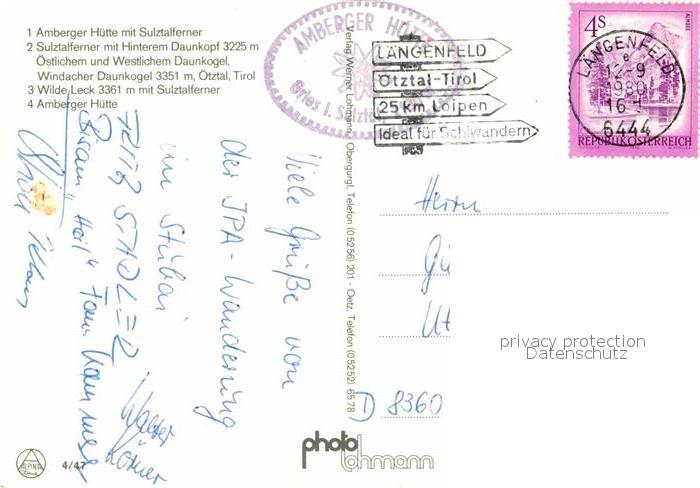 1 Amberger Hütte mit Sulztalferner
2 Sulztalferner mit Hinterem Daunkopf 3225 m
Östlichem und Westlichem Daunkogel,
Windacher Daunkogel 3351 m, Ötztal, Tirol
3 Wilde Leck 3361 m mit Sulztalferner
4 Amberger Hütte
AMBERGER HÜTTE
Gries i. Sulztal
LÄNGENFELD
Ötztal-Tirol
25 km Loipen
Ideal für Schiwandern
4S
LÄNGENFELD
12-9
1980
16-
6444
REPUBLIK ÖSTERREICH
Verlag Werner Lohmann, Obergurgl, Telefon (05256) 201 - Oetz, Telefon (05252) 6578
Viele Grüße von
der IPA-Wanderung
im Stubai
Walter
Herrn
Gü
Ut
D 8360
privacy protection
Datenschutz
photo
lohmann
ALPINA
4/47